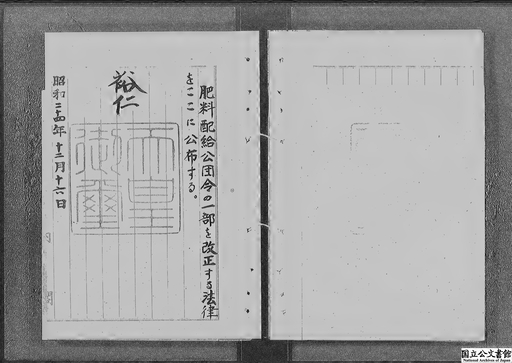 肥料配給公団令の一部を改正する法律
をここに公布する。
裕仁
天皇
御璽
昭和二十四年十二月十六日
国立公文書館
National Archives of Japan